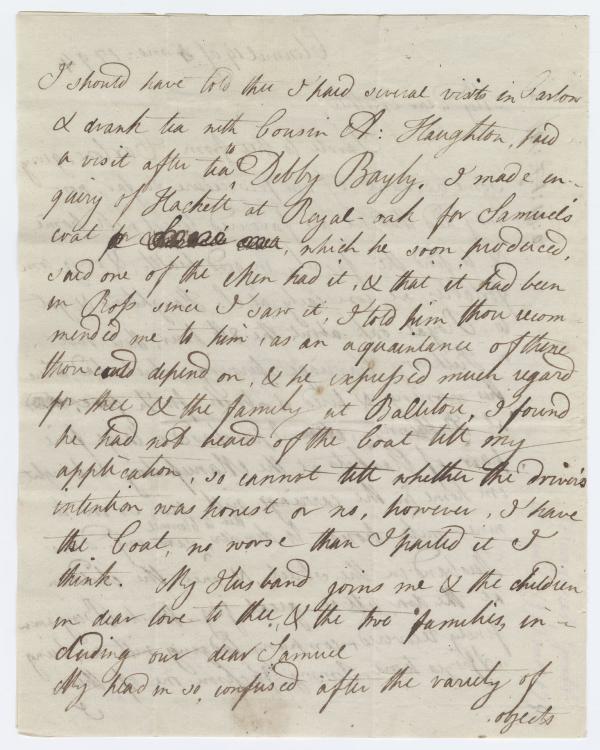 I should have told thee I paid several visits in Carlow
& drank tea with Cousin A: Haughton, paid
a visit after tea " Debby Bayly. I made en-
quiry of Hackett " at Royal-oak for Samuel's
coat , which he soon produced,
said one of the Men had it, & that it had been
in Ross since I saw it, I told him thou recom-
mended me to him, as an acquaintance of thine
thou could depend on, & he expressed much regard
for thee & the family at Ballitore, I found
he had not heard of the Coat till my
application, so cannot tell whether the driver's
intention was honest or no, however, I have
the Coat, no worse than I parted it I
think. My Husband joins me & the children
in dear love to thee, & the two families, in-
cluding our dear Samuel
My head is so confused after the variety of
objects